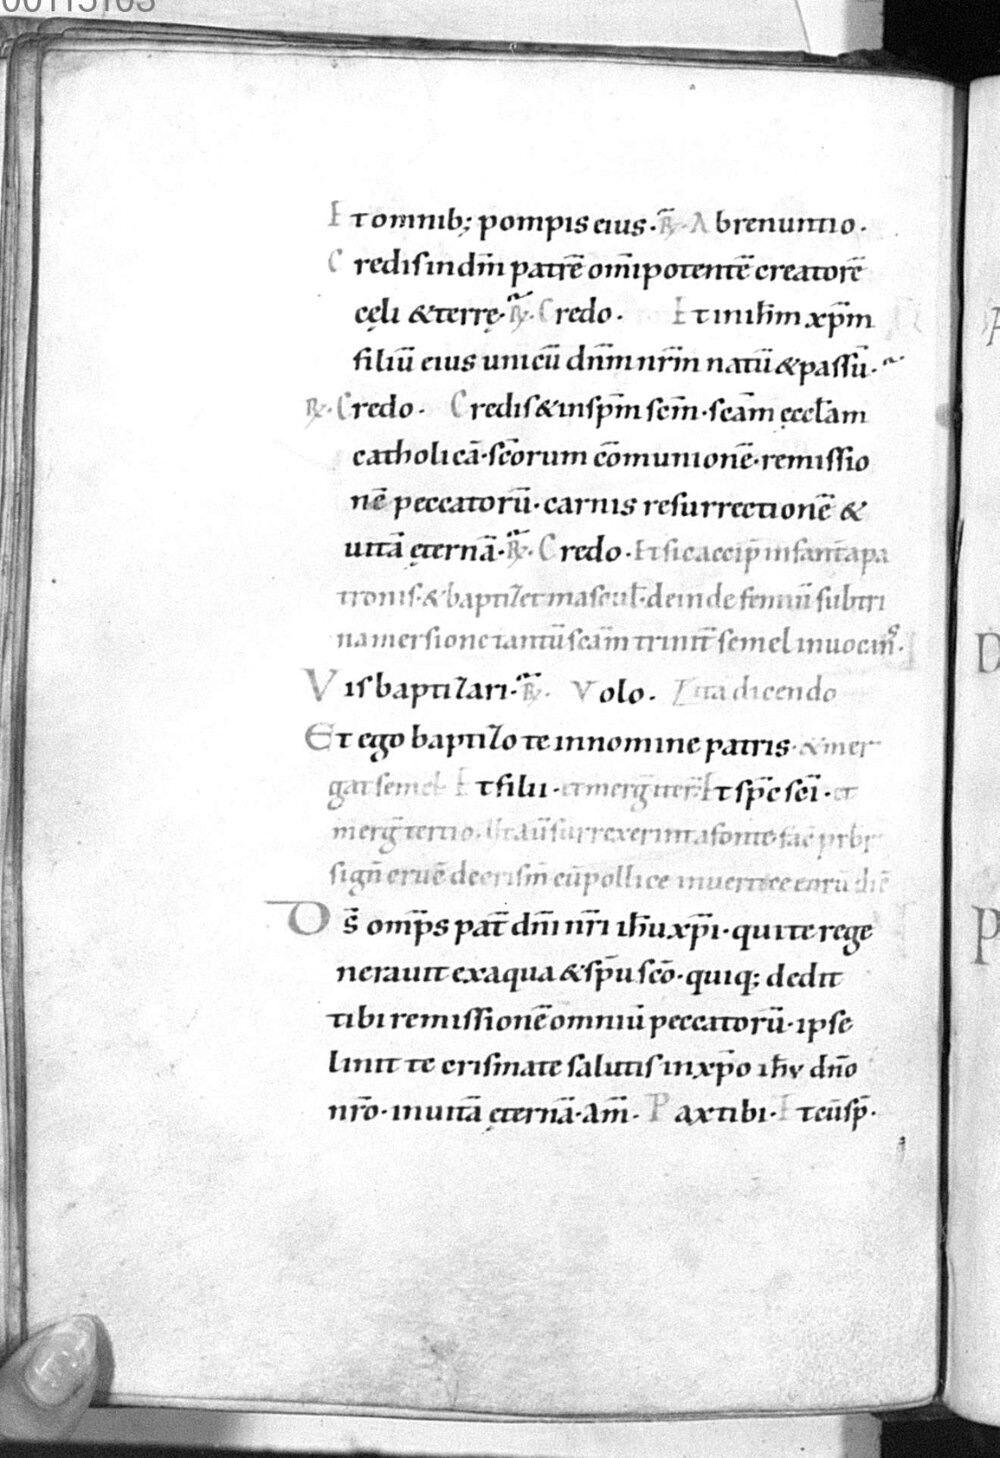 00115103
Et omnib; pompis eius · R̃ · Abrenuntio ·
Credis in dm̄ patrē om̄ipotentē creatorē
cęli & terrę · R̃ · Credo · Et in ih̄m xp̄m
filiū eius unicū dn̄m nr̄m natū & passū ·
R̃ · Credo · Credis & in sp̄m sc̄m · sc̄am ęccl̄am
catholicā · sc̄orum cōmunionē · remissio
nē peccatorū · carnis resurrectionē &
uitā ęternā · R̃ · Credo · Et sic accip̄ infant̄ a pa
tronis · & baptizet mascul̄ · deinde feminī sub tri
na mersione tantū sc̄am trinit̄ semel inuocan̄s ·
Vis baptizari · R̃ · Volo · Ita dicendo
Et ego baptizo te in nomine patris · & mer
gat semel · Et filii · et merḡ iter̄ · Et sp̄c sc̄i · et
merḡ tertio · Ut aū surrexerint a fonte fac̄ prb̄r
sign̄ crucē de crism̄ cū pollice in uertice eorū dic̄
Ds̄ omp̄s pat̄ dn̄i nr̄i ih̄u xp̄i · qui te rege
nerauit ex aqua & sp̄u sc̄o · quiq; dedit
tibi remissionē omniū peccatorū · ipse
linit te crismate salutis in xp̄o ih̄u dn̄o
nr̄o · in uitā ęternā · am̄ · Pax tibi · Et cū sp̄ ·